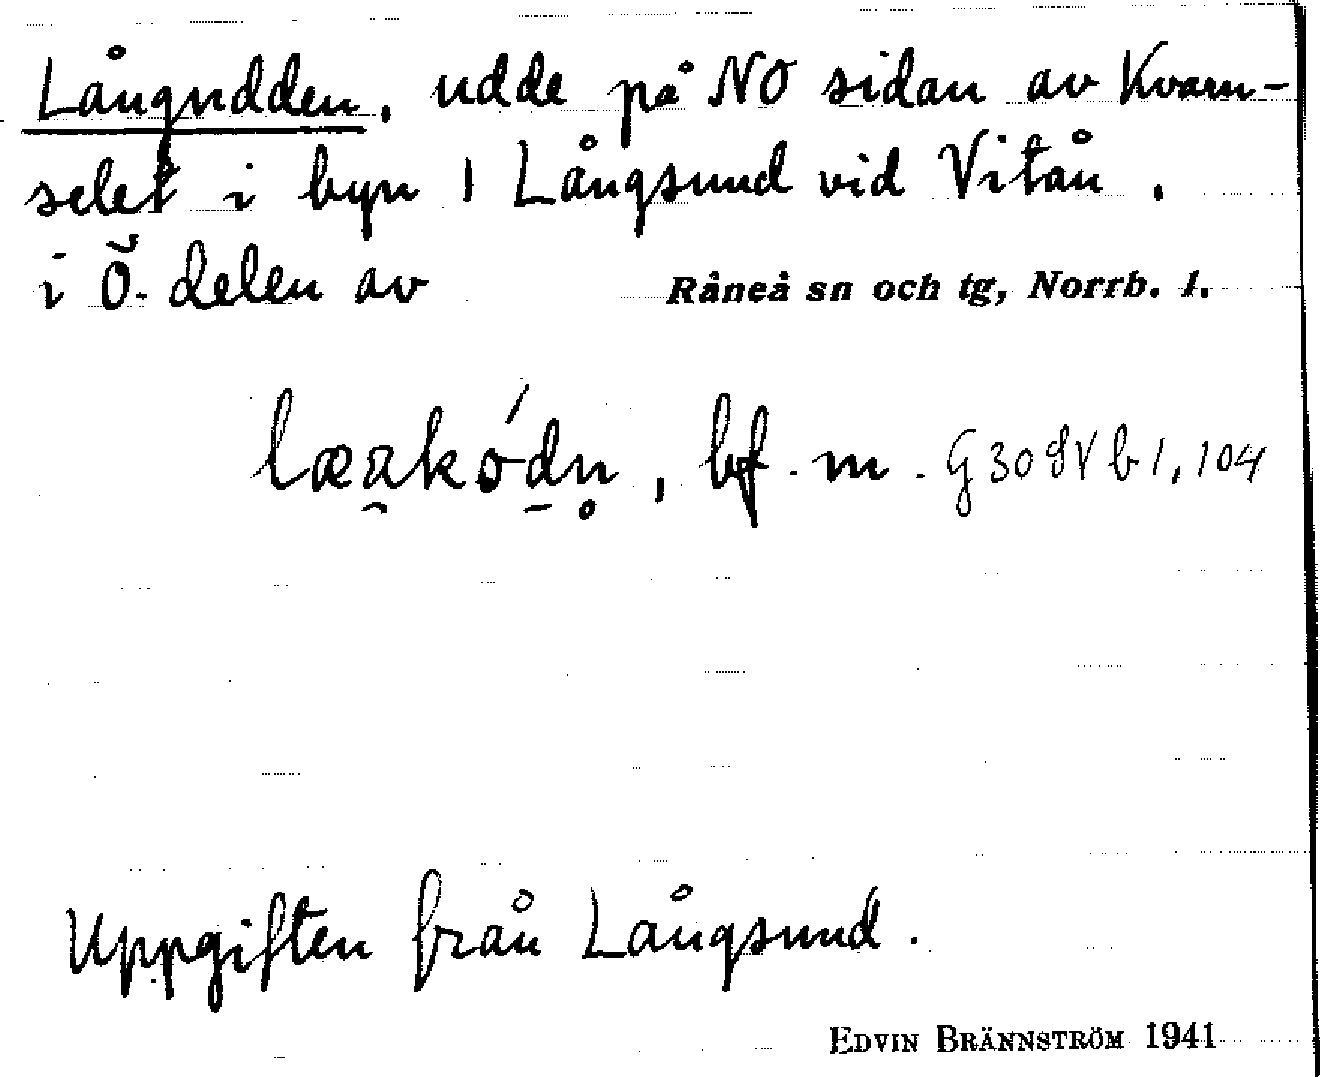 Långudden, udde på NO sidan av Kvarn-
selet i byn 1 Långsund vid Vitån.
i Ö. delen av Råneå sn och tg, Norrb. l.
læa̯kǿd̲n̥, bf. m. G30 SV b 1, 104
Uppgiften från Långsund.
EDVIN BRÄNNSTRÖM 1941